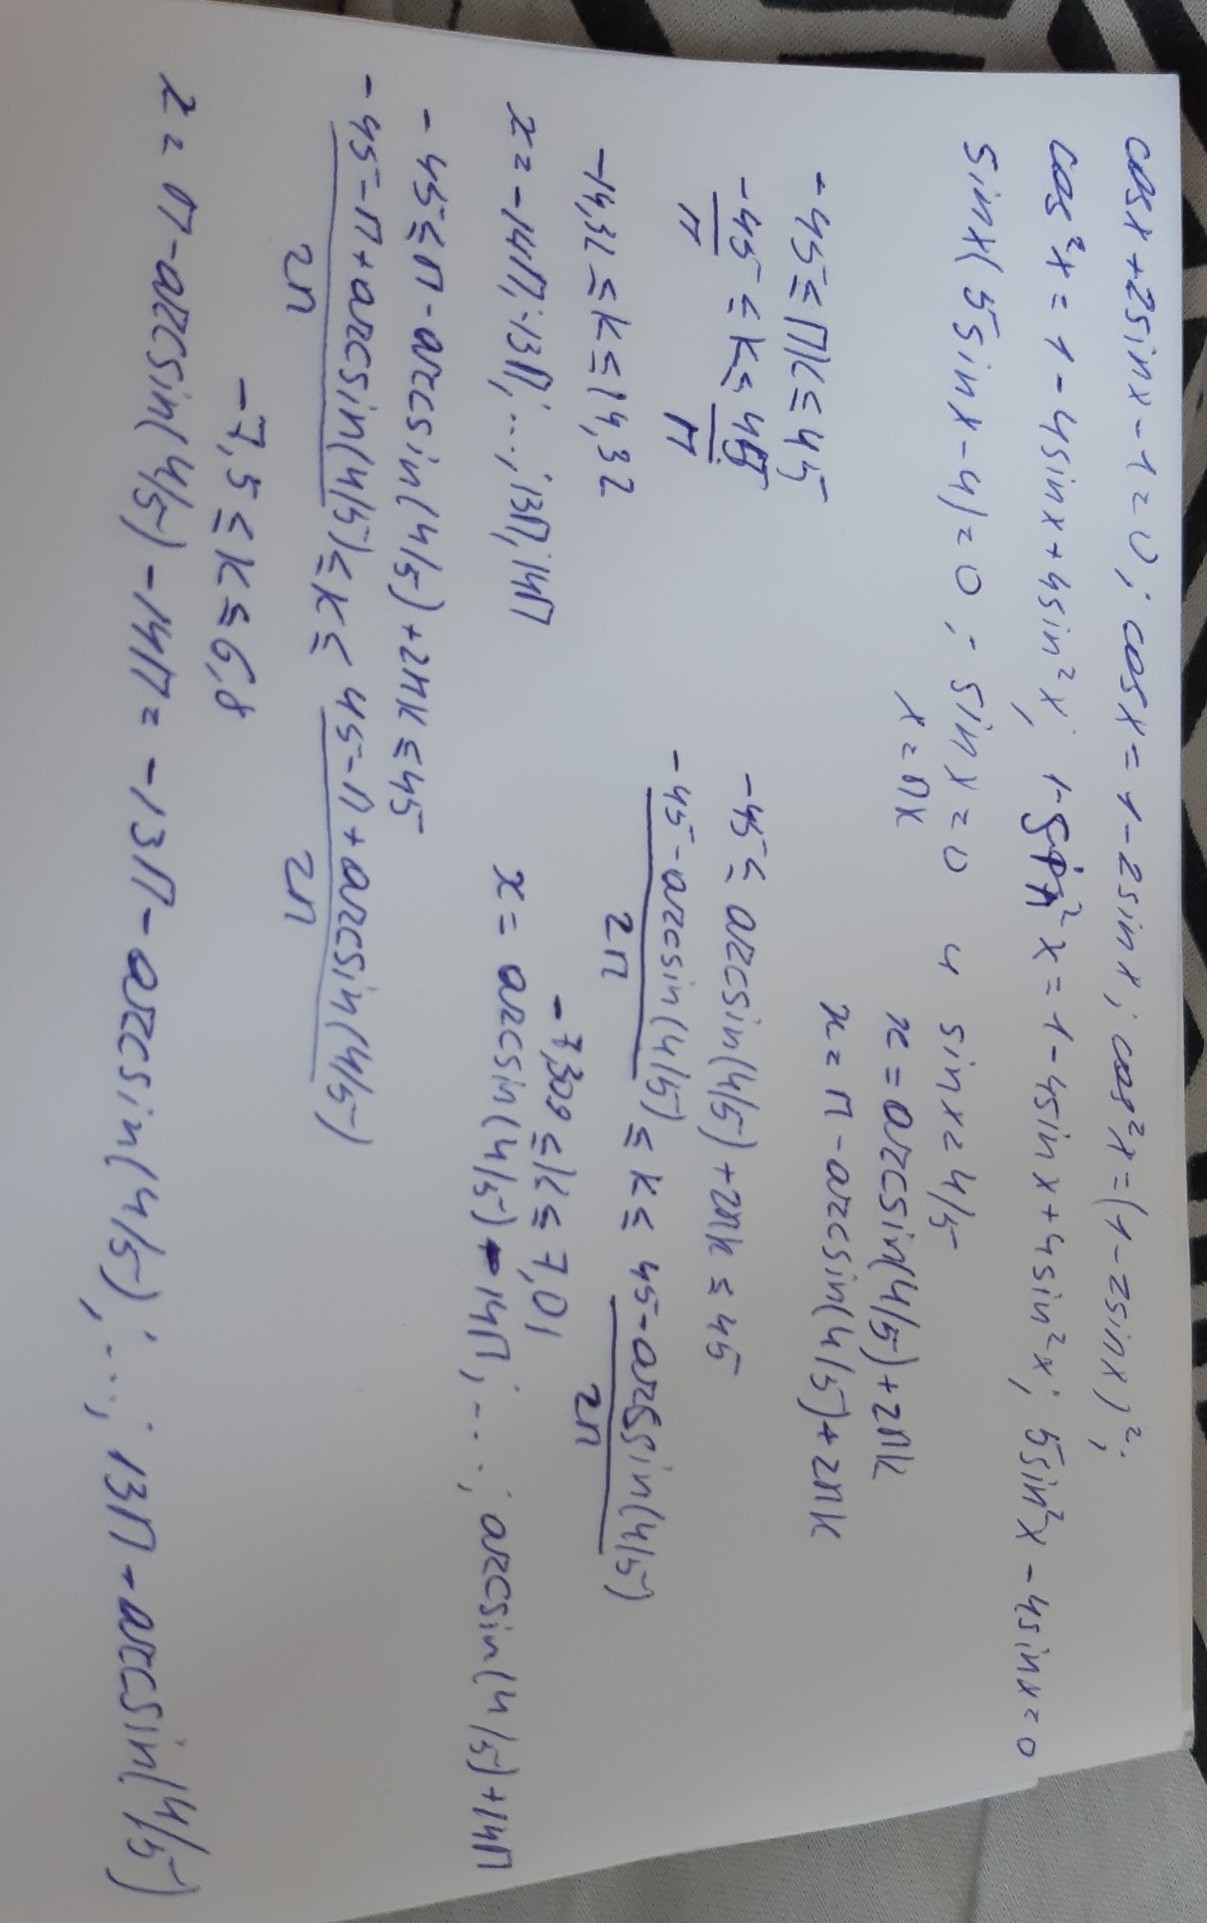 cosx+2sinx-1=0; cosx=1-2sinx; cos²x=(1-2sinx)²;
cos²x=1-4sinx+4sin²x; 1-sin²x=1-4sinx+4sin²x; 5sin²x-4sinx=0
sinx(5sinx-4)=0; sinx=0 и sinx=4/5
x=πk
x=arcsin(4/5)+2πk
x=π-arcsin(4/5)+2πk
-45≤πk≤45
-45/π≤k≤45/π
-14,32≤k≤14,32
x=-14π;-13π;...;13π;14π
-45≤arcsin(4/5)+2πk≤45
(-45-arcsin(4/5))/2π≤k≤(45-arcsin(4/5))/2π
-7,309≤k≤7,01
x=arcsin(4/5)-14π;...;arcsin(4/5)+14π
-45≤π-arcsin(4/5)+2πk≤45
(-45-π+arcsin(4/5))/2π≤k≤(45-π+arcsin(4/5))/2π
-7,5≤k≤6,8
x=π-arcsin(4/5)-14π=-13π-arcsin(4/5);...;13π-arcsin(4/5)